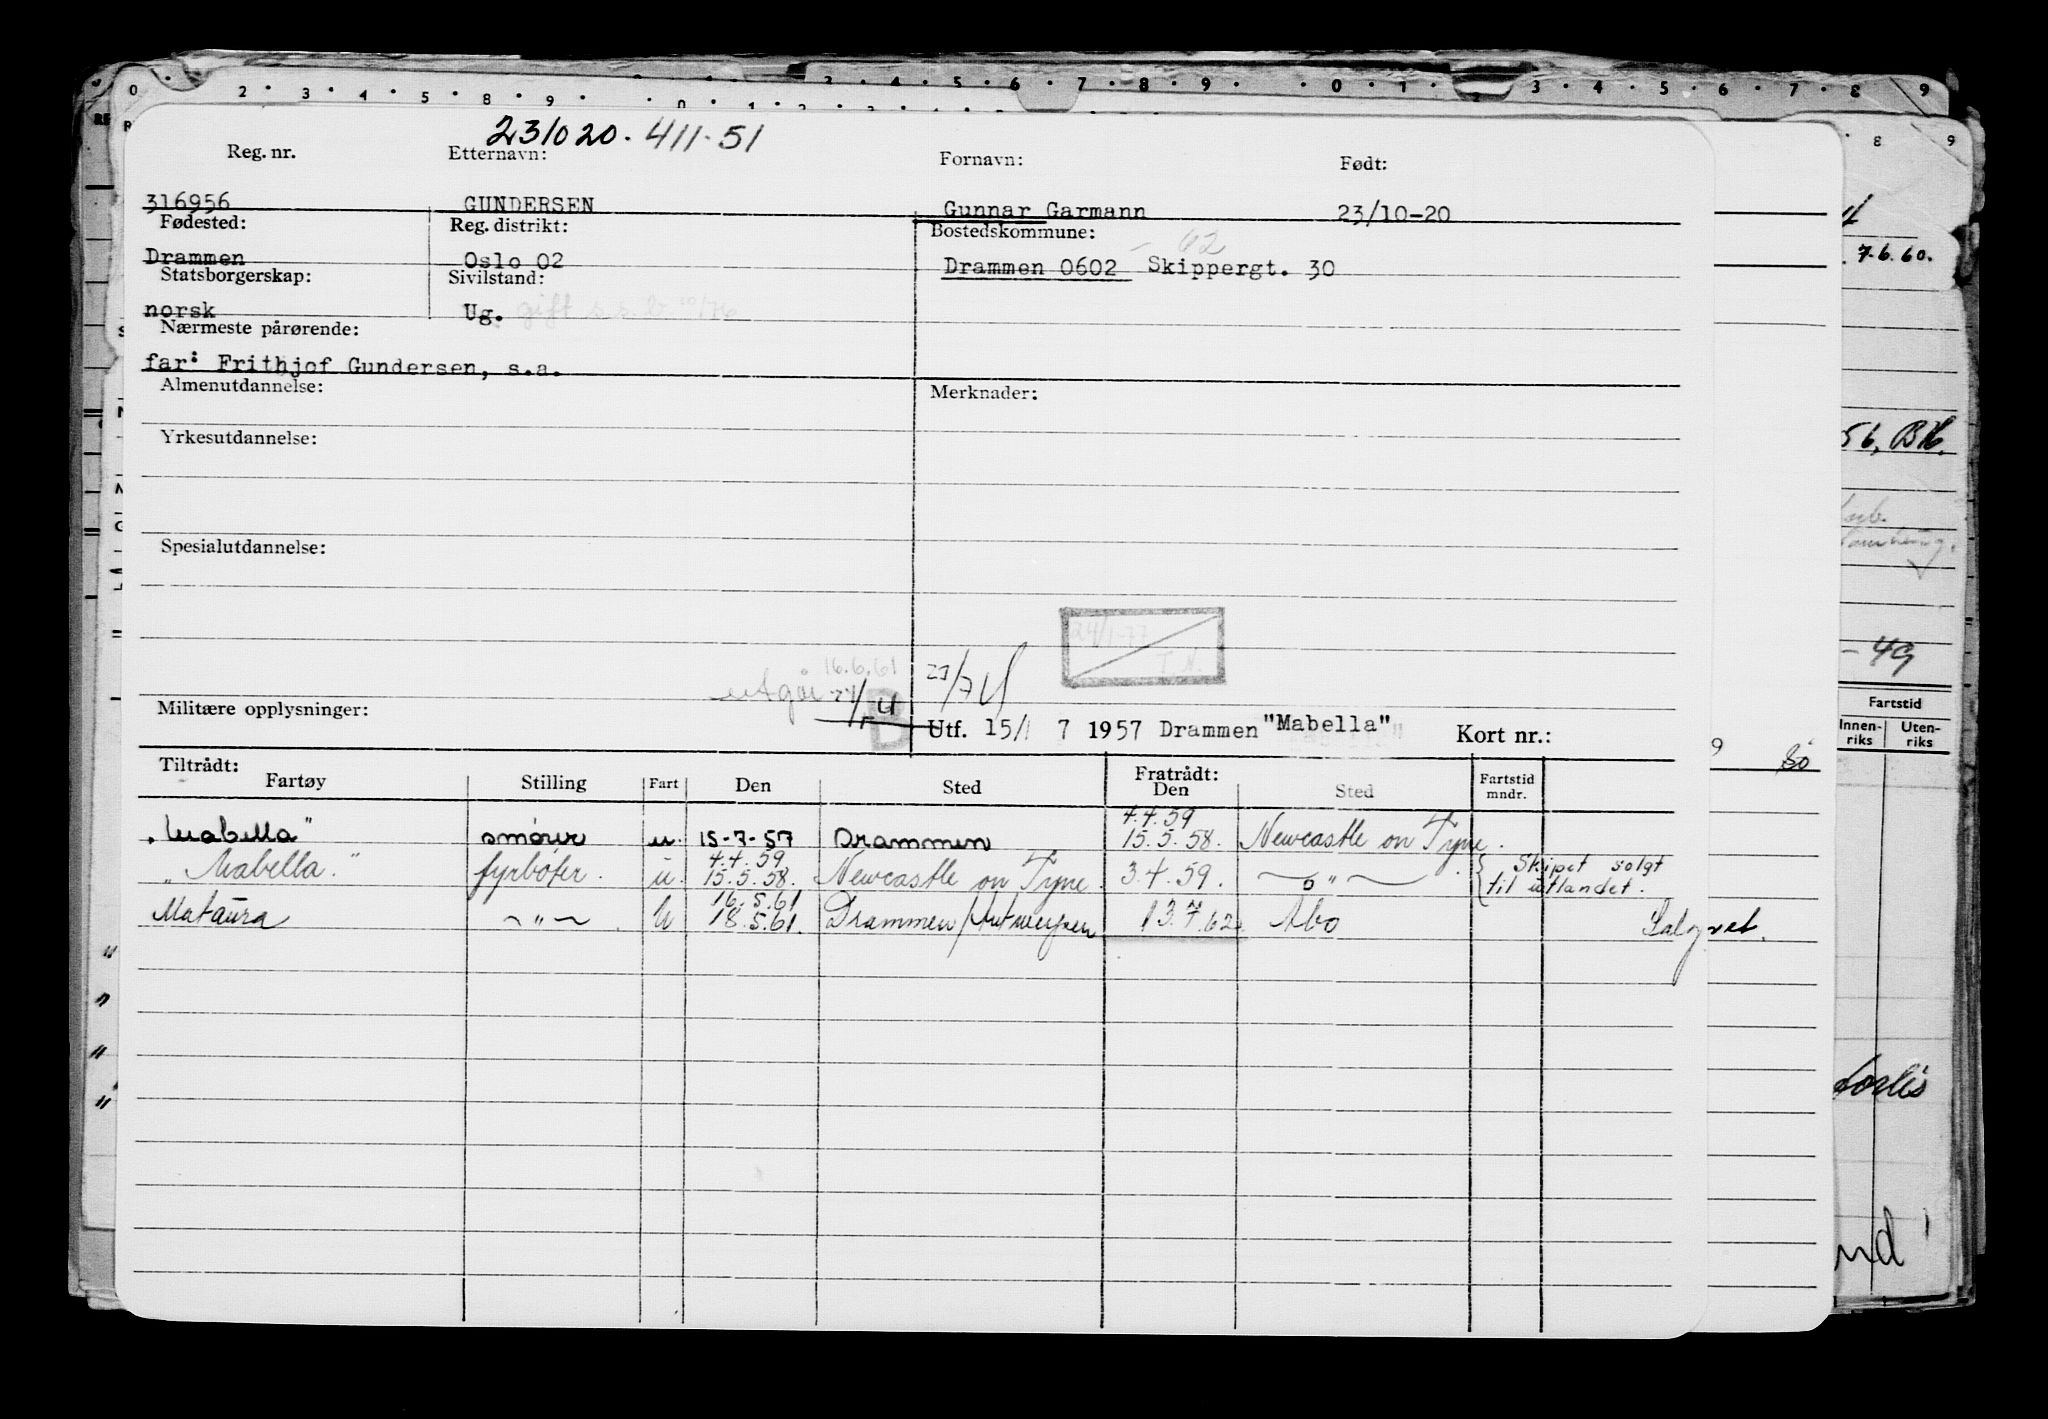 231020. 411-51
Reg. nr. Etternavn: Fornavn: Født:
316956 GUNDERSEN Gunnar Garmann 23/10-20
Fødested: Reg. distrikt: Bostedskommune:
- 62
Drammen Oslo 02 Drammen 0602 Skippergt. 30
Statsborgerskap: Sivilstand:
norsk Ug. gift
Nærmeste pårørende:
far: Frithjof Gundersen, s.a.
Almenutdannelse: Merknader:
Yrkesutdannelse:
Spesialutdannelse:
24/1-77
T.H.
16.6.61
utgår
Militære opplysninger: Utf. 15/ 7 1957 Drammen "Mabella" Kort nr.:
Tiltrådt: Fratrådt:
Fartøy Stilling Fart Den Sted Den Sted Fartstid mndr.
4.4.59
"Mabella" smører u. 15-7-57 Drammen 15.5.58. Newcastle on Tyne.
4.4.59
"Mabella." fyrbøter. u. 15.5.58. Newcastle on Tyne. 3.4.59. — " — Skipet solgt til utlandet.
16.5.61
Mataura — " — U 18.5.61. Drammen/Antwerpen 13.7.62 Åbo
7.6.60.
56, BH.
- 49
Fartstid
Innenriks Utenriks